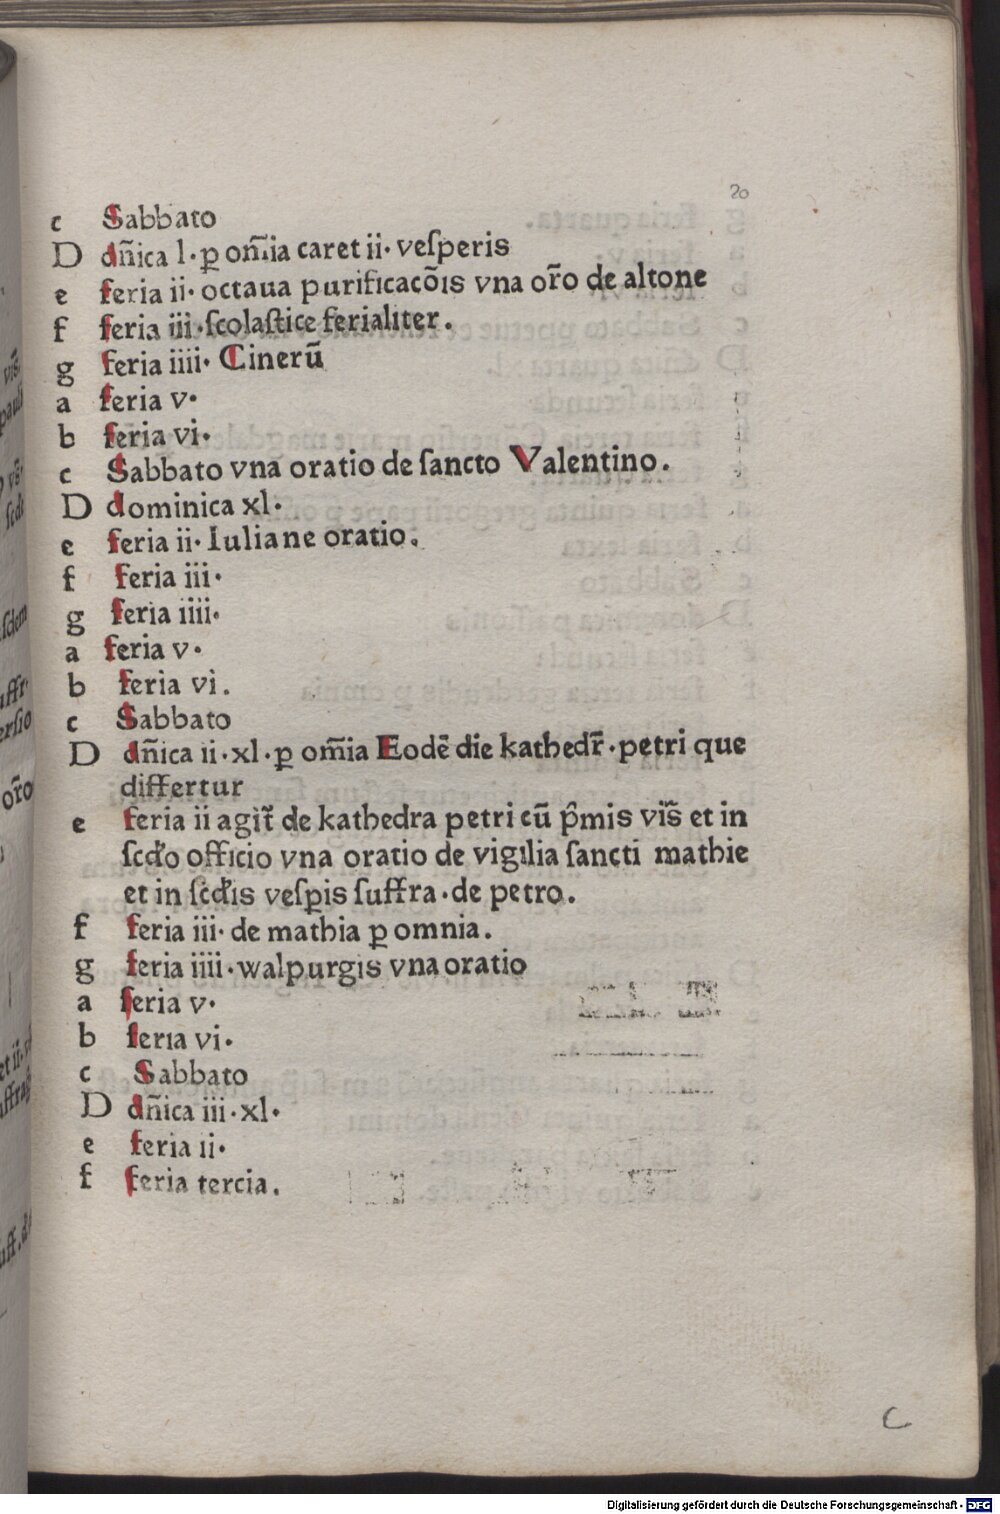 20
c Sabbato
D dñica l· ꝑ om̃ia caret ii· veſperis
e feria ii· octaua purificacõis vna or̃o de altone
f feria iii·ſcolaſtice ferialiter.
g feria iiii· Cinerū
a feria v·
b feria vi·
c Sabbato vna oratio de ſancto Valentino.
D dominica xl·
e feria ii· Iuliane oratio.
f feria iii·
g feria iiii·
a feria v·
b feria vi.
c Sabbato
D dñica ii·xl·ꝑ om̃ia Eodē die kathedr̃·petri que
differtur
e feria ii agit̃ de kathedra petri cū p̃mis vis̃ et in
ſcd̃o officio vna oratio de vigilia ſancti mathie
et in ſcd̃is veſꝑis ſuffra·de petro.
f feria iii· de mathia ꝑ omnia.
g feria iiii·walpurgis vna oratio
a feria v·
b feria vi·
c Sabbato
D dñica iii·xl·
e feria ii·
f feria tercia.
C
Digitalisierung gefördert durch die Deutsche Forschungsgemeinschaft - DFG